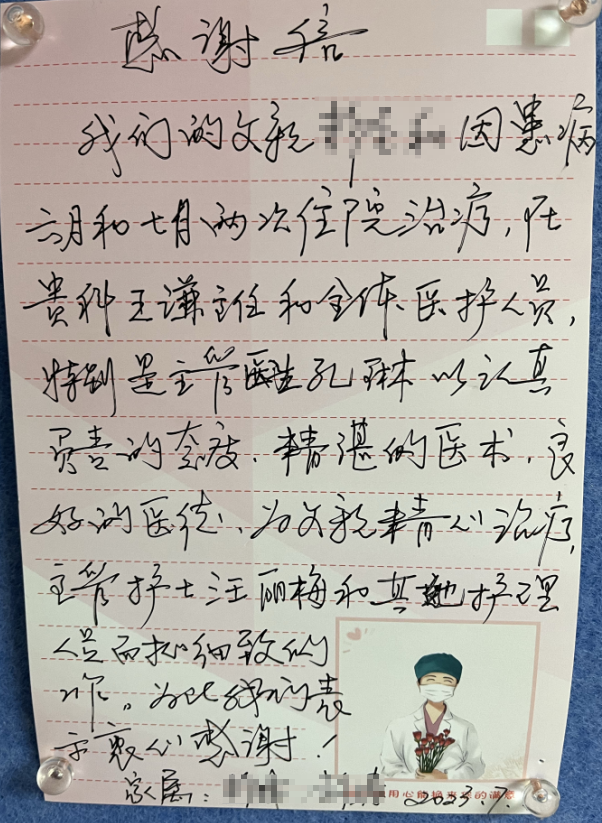 感谢信
我们的父亲 因患病
六月和七月两次住院治疗,在
贵科王谦主任和全体医护人员,
特别是主管医生孔琳以认真
负责的态度、精湛的医术、良
好的医德、为父亲精心治疗,
主管护士汪丽梅和其她护理
人员 细致的
作。为此我们表
示衷心感谢!
家属: 2023.7.
用心能换来您的满意